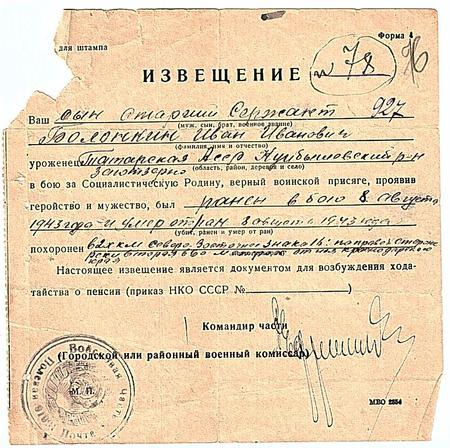 Форма 4
для штампа
№ 78
ИЗВЕЩЕНИЕ
Ваш сын старший Сержант 927
(муж, сын, брат, военное звание)
Болонкин Иван Иванович
(фамилия, имя и отчество)
уроженец Татарская Асср р-н
(область, район, деревня и село)
в бою за Социалистическую Родину, верный воинской присяге, проявив
геройство и мужество, был ранен в бою 8 августа
1943 года и умер от ран 8 августа 1943 года
(убит, ранен и умер от ран)
похоронен
Настоящее извещение является документом для возбуждения хода-
тайства о пенсии (приказ НКО СССР №
Командир части
(Городской или районный военный комиссар)
М. П.
Полевая Почта
Часть
МВО 2554